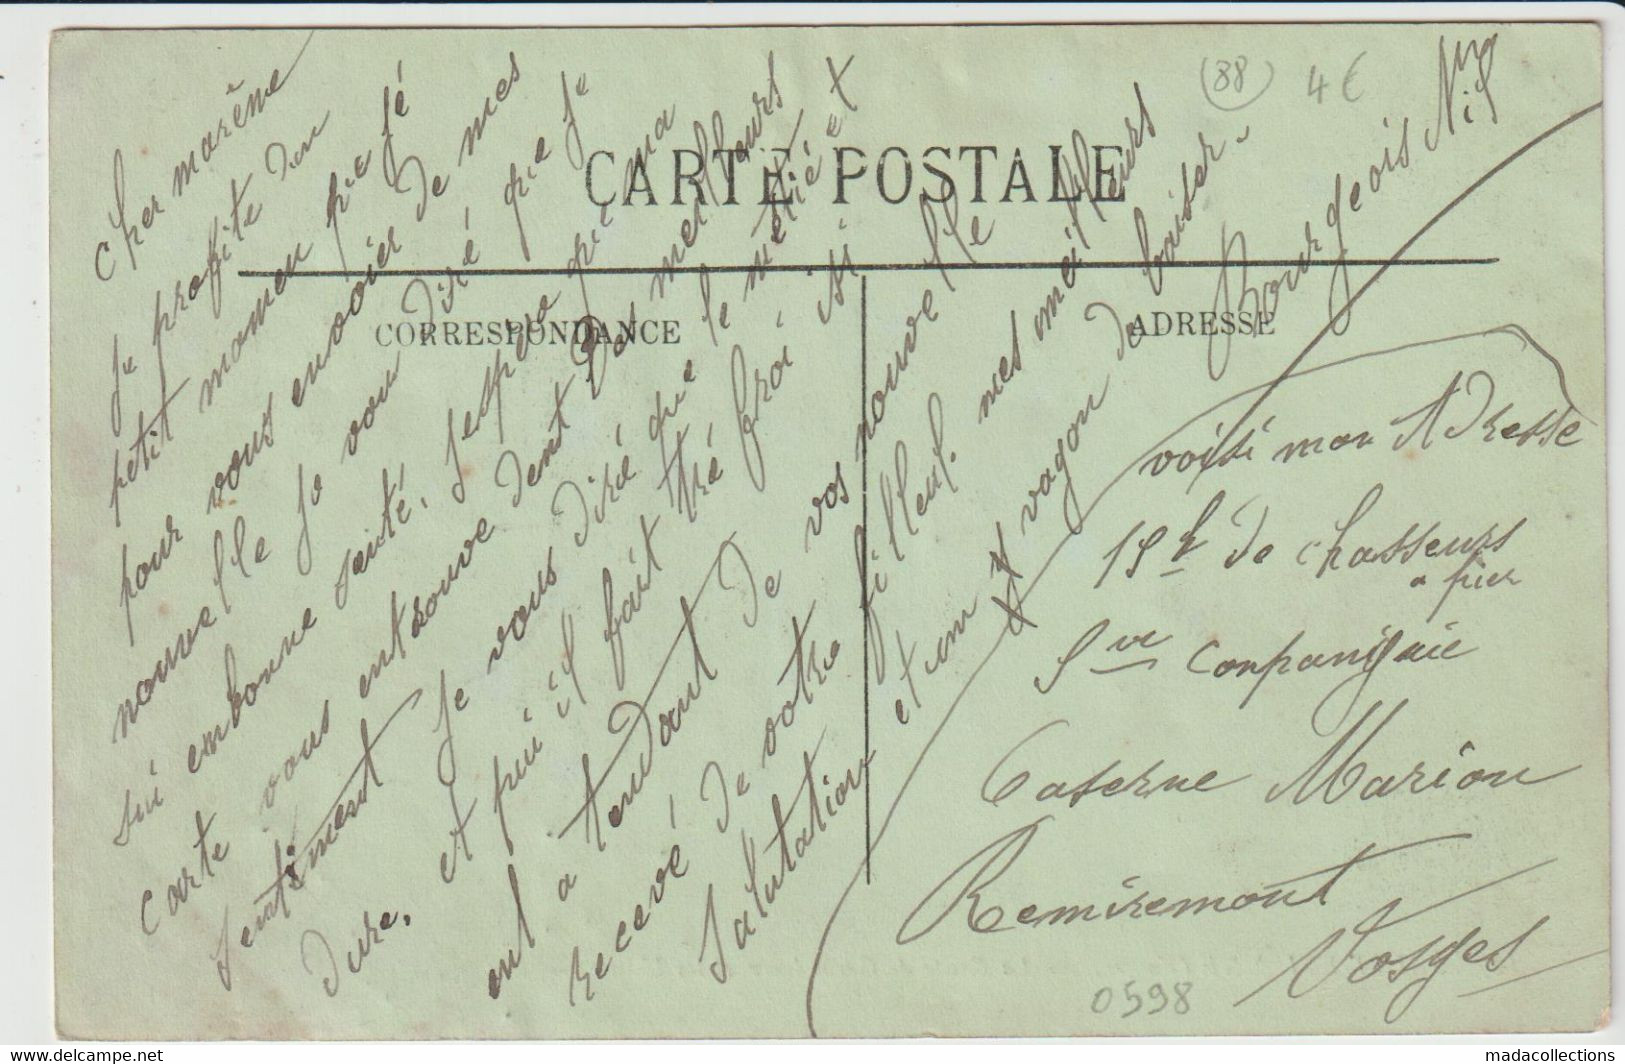 CARTE POSTALE
CORRESPONDANCE
ADRESSE
(88) 4€
Cher marême
Je profite dun
petit momen que jé
pour vous envoier de mes
nouvelle je vou diré que je
sui enbonne senté. J'espere que ma
carte vous entrouve dent des meilleurs
sentiment je vous diré que le métié et
dure. et pui il fait tré froi isi
ent a tendant de vos nouvelle
recevé de votre filleul. mes meilleurs
salutation et un vagon de baiser.
Bourgeois
voisi mon Adresse
15 de chasseurs
a pier
5ve conpanigaie
Caserne Marion
Remiremont
Vosges
0598
www.delcampe.net
madacollections